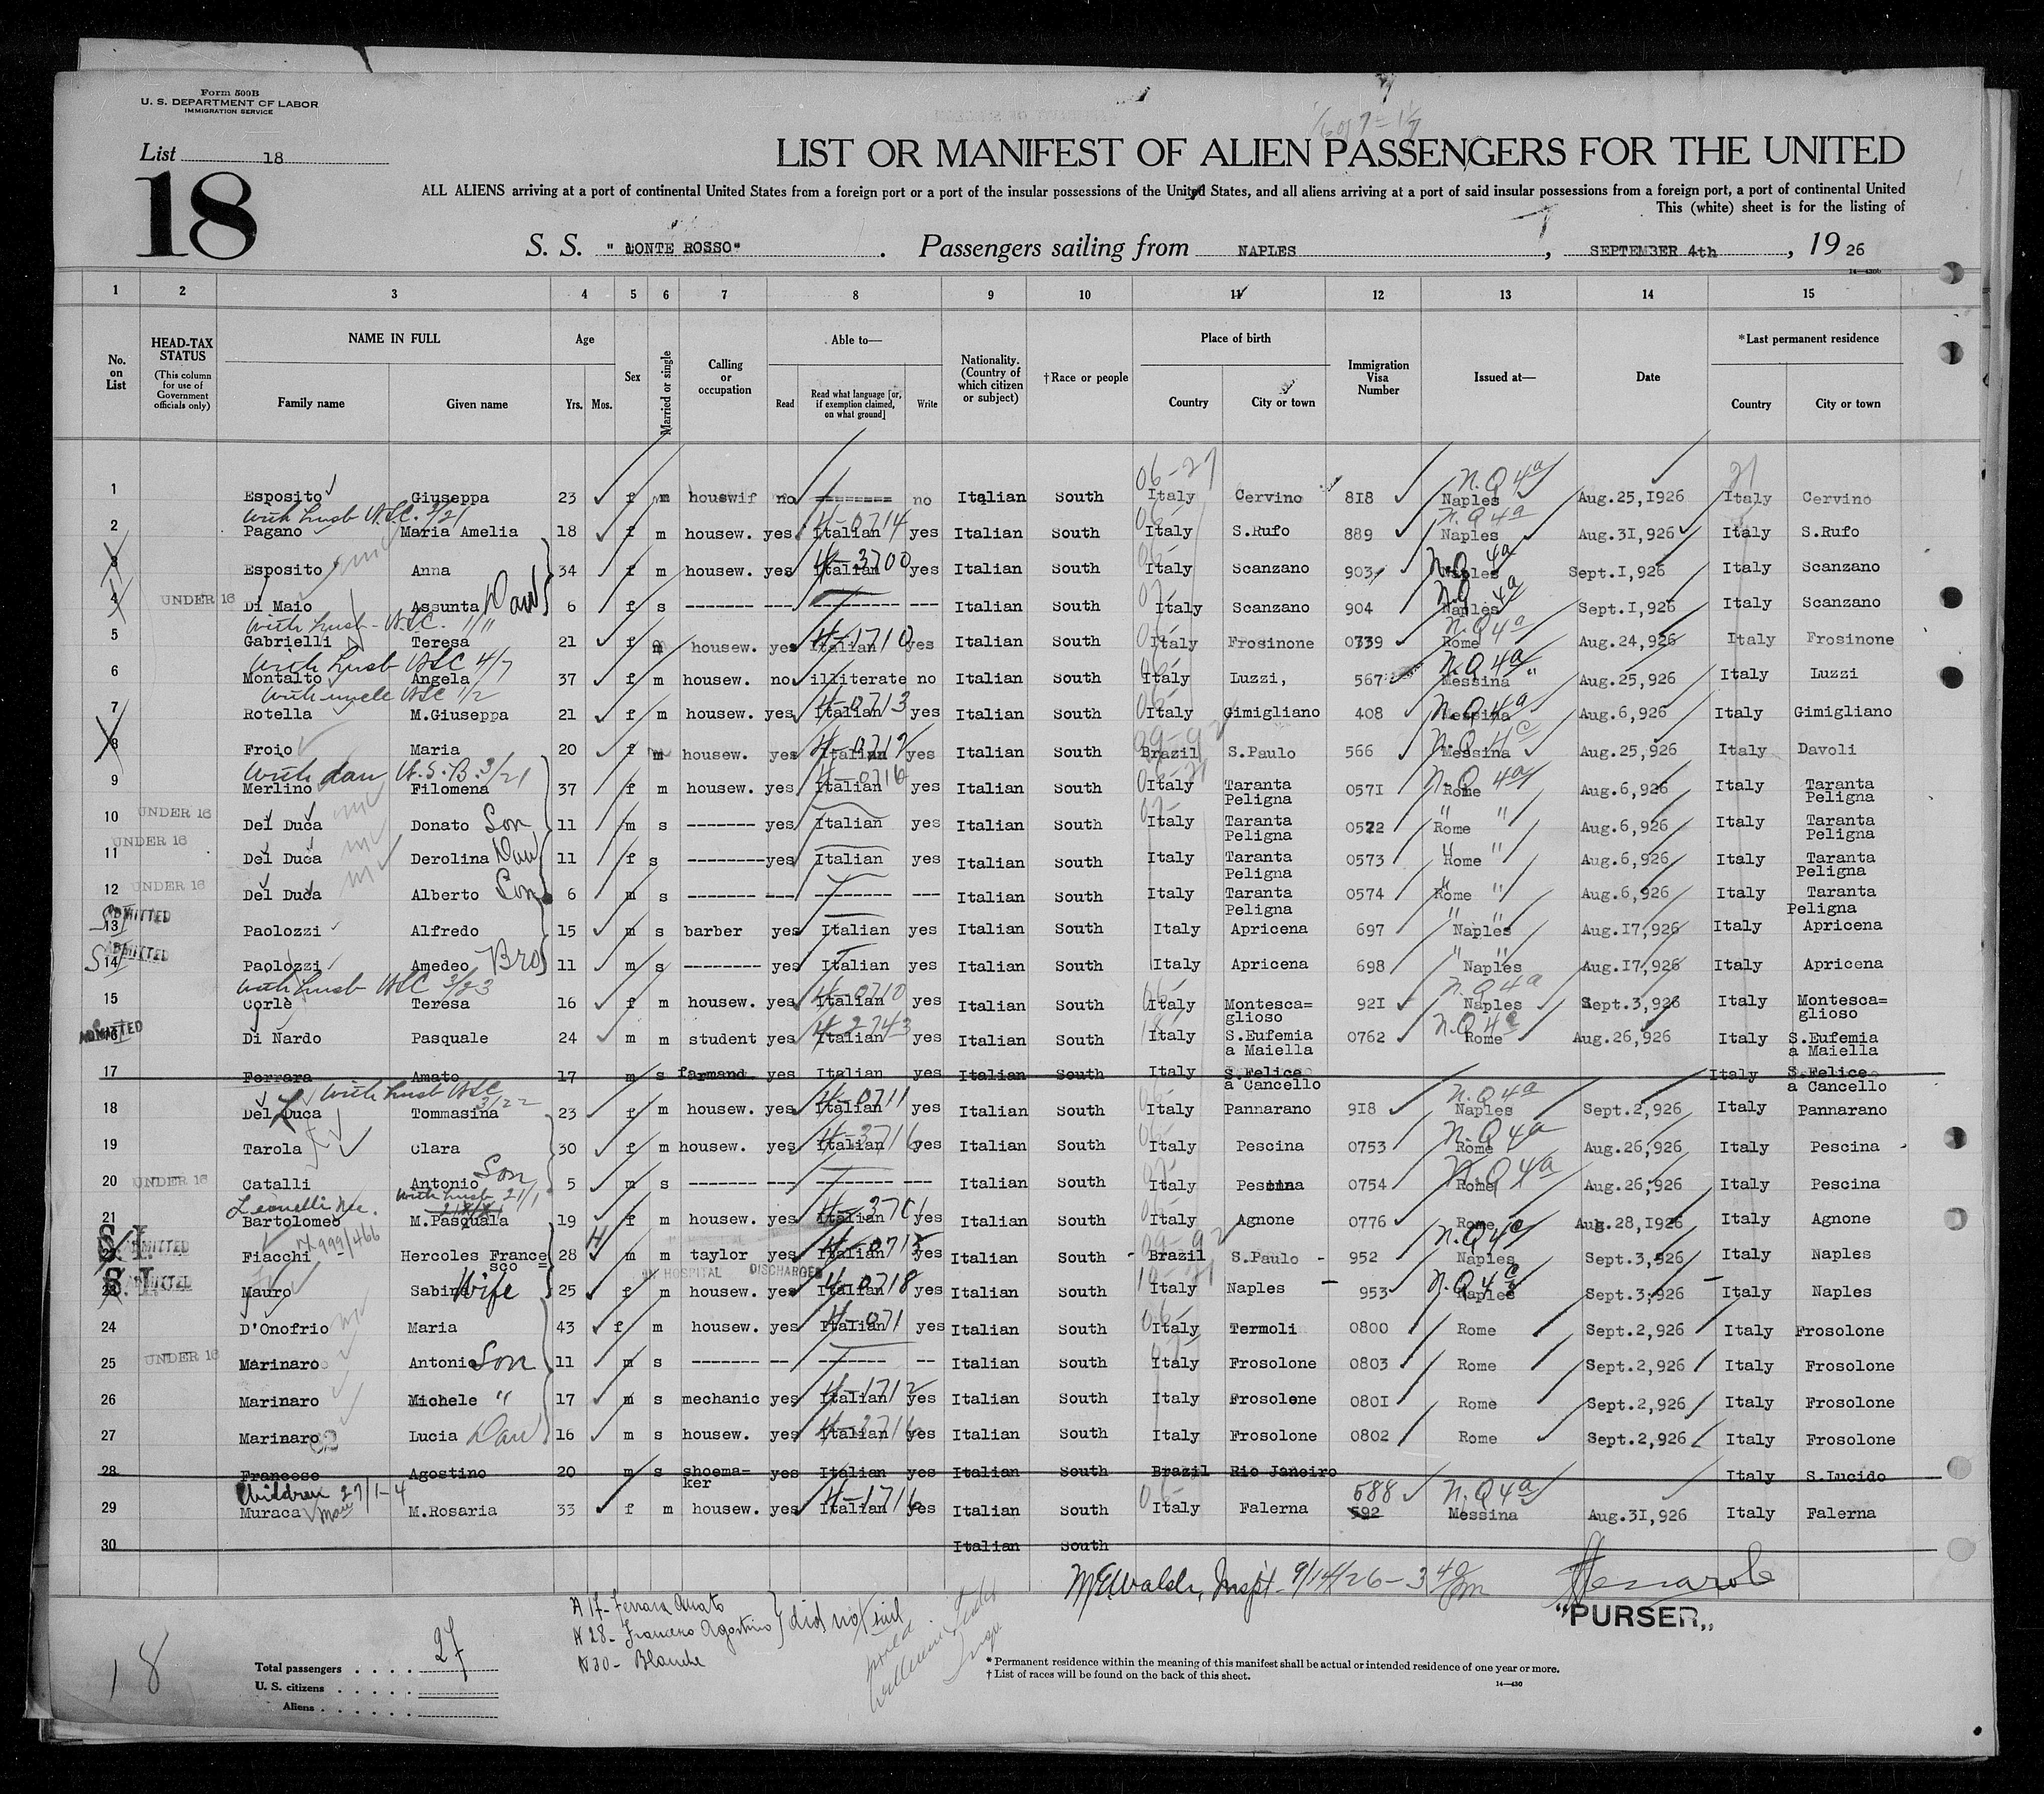 Form 500B
U. S. DEPARTMENT OF LABOR
IMMIGRATION SERVICE
List 18
18
LIST OR MANIFEST OF ALIEN PASSENGERS FOR THE UNITED
ALL ALIENS arriving at a port of continental United States from a foreign port or a port of the insular possessions of the United States, and all aliens arriving at a port of said insular possessions from a foreign port, a port of continental United
This (white) sheet is for the listing of
S. S. "CONTE ROSSO". Passengers sailing from NAPLES, SEPTEMBER 4th, 1926
14—430b
1 2 3 4 5 6 7 8 9 10 11 12 13 14 15
No. on List
HEAD-TAX STATUS (This column for use of Government officials only)
NAME IN FULL
Family name Given name
Age
Yrs. Mos.
Sex
Married or single
Calling or occupation
Able to—
Read Read what language [or, if exemption claimed, on what ground] Write
Nationality. (Country of which citizen or subject)
†Race or people
Place of birth
Country City or town
Immigration Visa Number
Issued at—
Date
*Last permanent residence
Country City or town
06-27 N.Q 4a 21
1 Esposito Giuseppa 23 f m houswif no ======== no Italian South Italy Cervino 818 Naples Aug.25,1926 Italy Cervino
with husb U.S.C. 3/21 4-0714 N.Q 4a
2 Pagano Maria Amelia 18 f m housew. yes Italian yes Italian South Italy S.Rufo 889 Naples Aug.31,926 Italy S.Rufo
4-3700 N.Q 4a
3 Esposito Anna 34 f m housew. yes Italian yes Italian South Italy Scanzano 903 Naples Sept.1,926 Italy Scanzano
N.Q 4a
4 UNDER 16 Di Maio Assunta Dau 6 f s ------- --- --------- --- Italian South Italy Scanzano 904 Naples Sept.1,926 Italy Scanzano
with husb - U.S.C. 1/11 4-1710 N.Q 4a
5 Gabrielli Teresa 21 f m housew. yes Italian yes Italian South Italy Frosinone 0739 Rome Aug.24,926 Italy Frosinone
with husb USC 4/7 N.Q 4a
6 Montalto Angela 37 f m housew. no illiterate no Italian South Italy Luzzi, 567 Messina " Aug.25,926 Italy Luzzi
with uncle USC 1/2 4-0713 N.Q 4a
7 Rotella M.Giuseppa 21 f m housew. yes Italian yes Italian South Italy Gimigliano 408 Messina Aug.6,926 Italy Gimigliano
09-92 N.Q 4c
8 Froio Maria 20 f m housew. yes Italian yes Italian South Brazil S.Paulo 566 Messina Aug.25,926 Italy Davoli
with dau U.S.B. 3/21 N.Q 4a
9 Merlino Filomena 37 f m housew. yes Italian yes Italian South Italy Taranta Peligna 0571 Rome Aug.6,926 Italy Taranta Peligna
10 UNDER 16 Del Duca Donato Son 11 m s ------- yes Italian yes Italian South Italy Taranta Peligna 0572 Rome " " Aug.6,926 Italy Taranta Peligna
11 UNDER 16 Del Duca Derolina Dau 11 f s -------- yes Italian yes Italian South Italy Taranta Peligna 0573 Rome " " Aug.6,926 Italy Taranta Peligna
12 UNDER 16 Del Duca Alberto Son 6 m s ------- --- -------- --- Italian South Italy Taranta Peligna 0574 Rome " " Aug.6,926 Italy Taranta Peligna
13 ADMITTED SI Paolozzi Alfredo 15 m s barber yes Italian yes Italian South Italy Apricena 697 Naples " " Aug.17,926 Italy Apricena
14 ADMITTED SI Paolozzi Amedeo Bro 11 m s -------- yes Italian yes Italian South Italy Apricena 698 Naples " " Aug.17,926 Italy Apricena
with husb USC 3/23 4-0710 N.Q 4a
15 Corle Teresa 16 f m housew. yes Italian yes Italian South Italy Montesca=glioso 921 Naples Sept.3,926 Italy Montesca=glioso
4-2743 N.Q 4c
16 ADMITTED Di Nardo Pasquale 24 m m student yes Italian yes Italian South Italy S.Eufemia a Maiella 0762 Rome Aug.26,926 Italy S.Eufemia a Maiella
17 Ferrara Amato 17 m s farmand yes Italian yes Italian South Italy S.Felice a Cancello Italy S.Felice a Cancello
with husb USC 3/22 4-0711 N.Q 4a
18 Del Duca Tommasina 23 f m housew. yes Italian yes Italian South Italy Pannarano 918 Naples Sept.2,926 Italy Pannarano
4-3716 N.Q 4a
19 Tarola Clara 30 f m housew. yes Italian yes Italian South Italy Pescina 0753 Rome Aug.26,926 Italy Pescina
N.Q 4a
20 UNDER 16 Catalli Antonio Son 5 m s ------- --- -------- --- Italian South Italy Pescina 0754 Rome Aug.26,926 Italy Pescina
with husb 21/1 4-3701
21 Bartolomeo M.Pasquala 19 f m housew. yes Italian yes Italian South Italy Agnone 0776 Rome Aug.28,1926 Italy Agnone
999/466 09-92 N.Q 4c
22 S.I. ADMITTED Fiacchi Hercoles France=sco 28 m m taylor yes Italian yes Italian South Brazil S.Paulo 952 Naples Sept.3,926 Italy Naples
IN HOSPITAL DISCHARGED
4-0718 N.Q 4c
23 S.I. ADMITTED Mauro Sabina Wife 25 f m housew. yes Italian yes Italian South Italy Naples 953 Naples Sept.3,926 Italy Naples
4-071
24 D'Onofrio Maria 43 f m housew. yes Italian yes Italian South Italy Termoli 0800 Rome Sept.2,926 Italy Frosolone
25 UNDER 16 Marinaro Antonio Son 11 m s ------- -- ------- -- Italian South Italy Frosolone 0803 Rome Sept.2,926 Italy Frosolone
4-1712
26 Marinaro Michele " 17 m s mechanic yes Italian yes Italian South Italy Frosolone 0801 Rome Sept.2,926 Italy Frosolone
4-2716
27 Marinaro Lucia Dau 16 m s housew. yes Italian yes Italian South Italy Frosolone 0802 Rome Sept.2,926 Italy Frosolone
28 Franceso Agostino 20 m s shoema=ker yes Italian yes Italian South Brazil Rio Janeiro Italy S.Lucido
Children 27/1-4 4-1716 688 N.Q 4a
29 Muraca M.Rosaria 33 f m housew. yes Italian yes Italian South Italy Falerna 592 Messina Aug.31,926 Italy Falerna
30 Italian South
Inspt. 9/14/26-3 40 pm
"PURSER"
N 17- Ferrara Amato
N 28- Franceso Agostino } did not sail
N 30- Blanche
18
Total passengers . . . . 27
U. S. citizens . . . . .
Aliens . . . . . .
* Permanent residence within the meaning of this manifest shall be actual or intended residence of one year or more.
† List of races will be found on the back of this sheet.
14—430